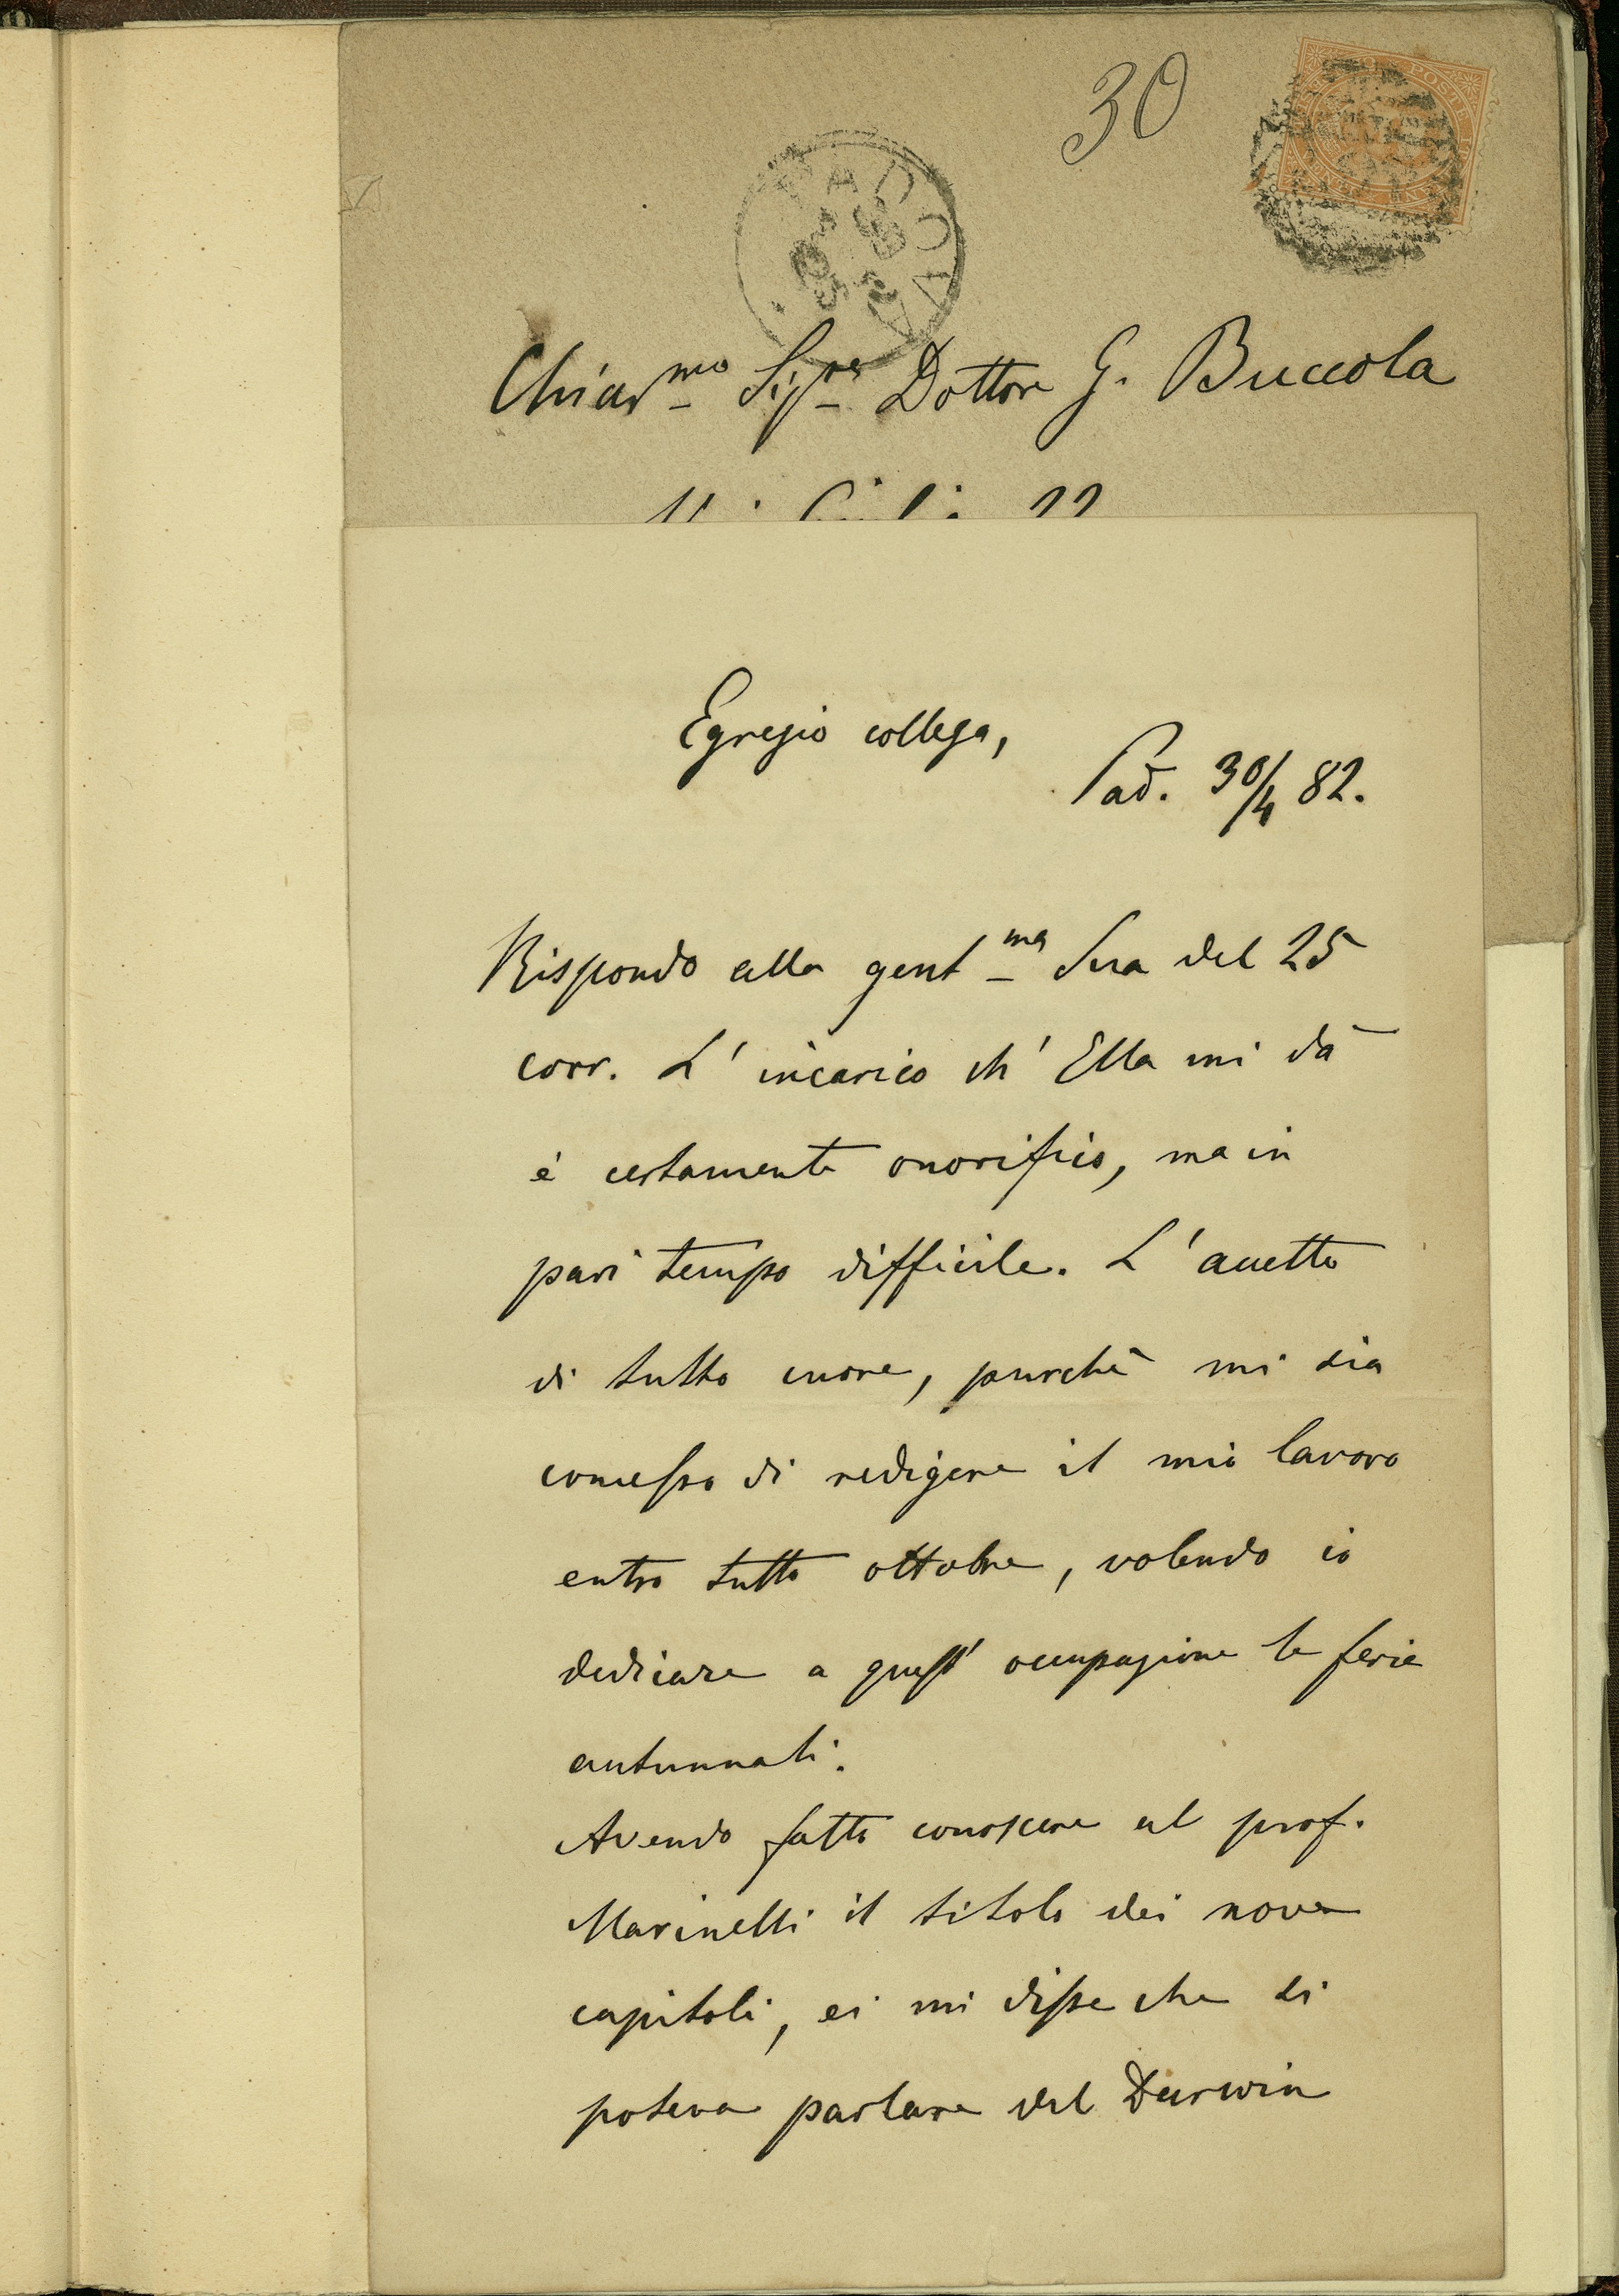 30
PADOVA
Chiar.mo Sig.re Dottore G. Buccola
22
Egregio collega,
Pad. 30/4 82.
Rispondo alla gent.ma Sua del 25
corr. L' incarico ch' Ella mi dà
è certamente onorifico, ma in
pari tempo difficile. L' accetto
di tutto cuore, purchè mi sia
concesso di redigere il mio lavoro
entro tutto ottobre, volendo io
dedicare a quest' occupazione le ferie
autunnali.
Avendo fatto conoscere al prof.
Marinelli il titolo dei nove
capitoli, ei mi disse che si
poteva parlare del Darwin